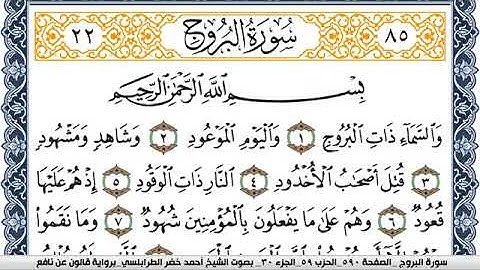 ٨٥ سُورَةُ الْبُرُوجِ ٢٢
بِسْمِ اللَّهِ الرَّحْمَٰنِ الرَّحِيمِ
وَالسَّمَآءِ ذَاتِ الْبُرُوجِ ١ وَالْيَوْمِ الْمَوْعُودِ ٢ وَشَاهِدٍ وَمَشْهُودٍ
٣ قُتِلَ أَصْحَابُ الْأُخْدُودِ ٤ النَّارِ ذَاتِ الْوَقُودِ ٥ إِذْ هُمْ عَلَيْهَا
قُعُودٌ ٦ وَهُمْ عَلَىٰ مَا يَفْعَلُونَ بِالْمُؤْمِنِينَ شُهُودٌ ٧ وَمَا نَقَمُوا
سورة البروج _ الصفحة ٥٩٠_ الحزب ٥٩_ الجزء ٣٠_ بصوت الشيخ أحمد خضر الطرابلسي_ برواية قالون عن نافع